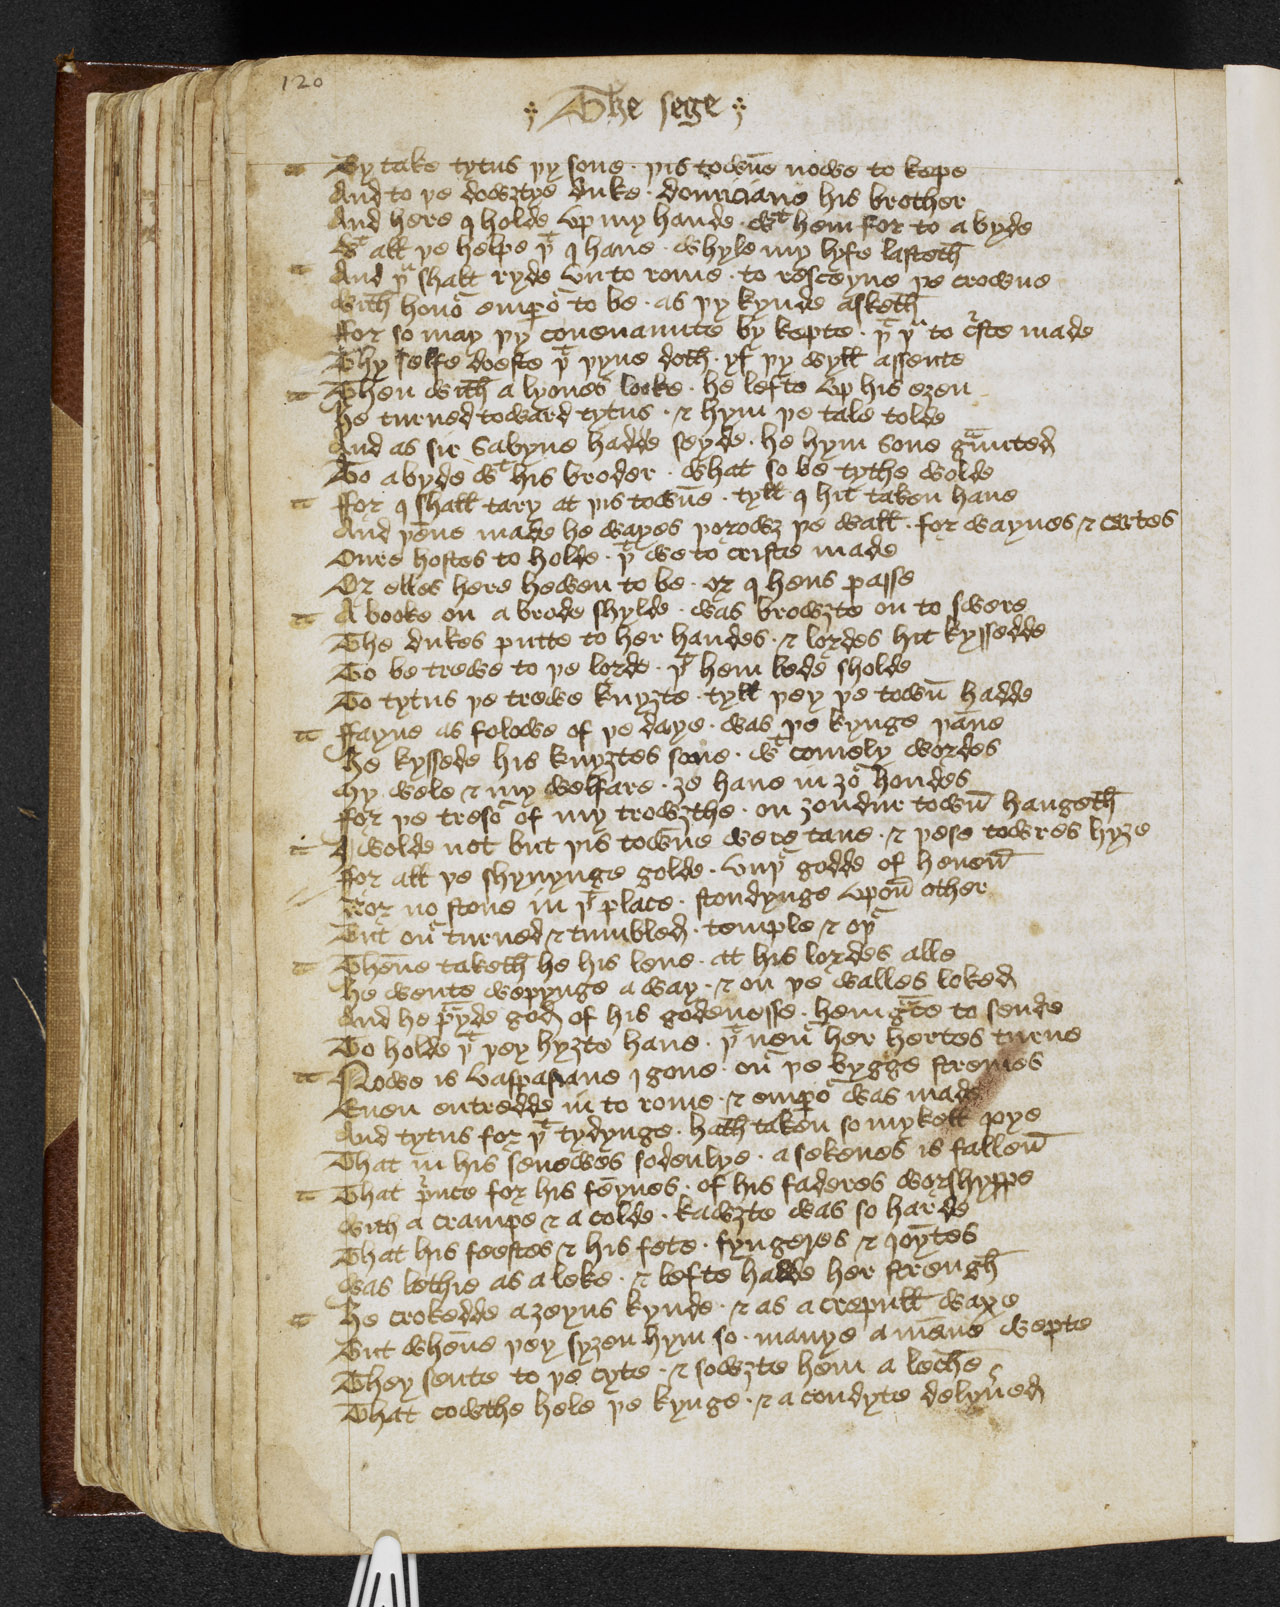 120
The sege
By take tytus þy sone · þis towne nowe to kepe
And to þe dowȝtye duke · domiciane his brother
And here I holde vp my hande · wt hem for to abyde
Wt all þe helpe þt I haue · whyle my lyfe lasteth
And þu shalt ryde vnto rome · to resceyue þe crowne
With honor emperor to be · as þy kynde asketh
For so may þy couenaunte by kepte · þat þu to criste made
Thy selfe doeste þt þyne doth · yf þy wyll assente
Then with a lyones looke · he lefte vp his eȝen
He turned toward tytus · & hym þe tale tolde
And as sir Sabyne hadde seyde · he hym sone graunted
To abyde wt his broder · what so be tythe wolde
Ffor I shall tary at þis towne · tyll I hit taken haue
And þenne made he wayes þorowȝ þe wall · for waynes & cartes
Oure hostes to holde · þat we to criste made
Or elles here hewen to be · or I hens passe
A booke on a brode shylde · was browȝte on to swere
The dukes putte to her handes · & lordes hit kyssedde
To be trewe to þe lorde · þt hem lede sholde
To tytus þe trewe knyȝte · tyll þey þe town hadde
Ffayne as folowe of þe daye · was þe kynge þanne
He kyssede his knyȝtes sone · wt comely wordes
My wele & my welfare · ȝe haue in ȝor hondes
For þe tresor of my trowȝthe · on ȝondur town hangeth
I wolde not but þis towne were tane · & þese towres hyȝe
Ffor all þe shynynge golde · vnþer godde of heuen
Nor no stone in þt place · stondynge vpon other
But ouer turned & tumbled · temple & oþer
Thenne taketh he his leue · at his lordes alle
He wente wepynge a way · & on þe walles loked
And he prayde god of his godenesse · hem grace to sende
To holde þt þey hyȝte haue · þat neuer her hertes turne
Nowe is vaspasiane I gone · ouer þe bygge stremes
Euen entredde in to rome · & emperor was made
And tytus for þt tydynge · hath taken so mykell ioye
That in his senewes sodenlye · a sekenes is fallen
That prince for his feynes · of his faderes worshyppe
With a crampe & a colde · kawȝte was so harde
That his feestes & his fete · fyngeres & ioyntes
Was lethie as a leke · & lefte hadde her strengh
He crokedde aȝeyns kynde · & as a crepull waxe
But whenne þey syȝen hym so · manye a manne wepte
They sente to þe cyte · & sowȝte hem a leche
That cowthe hele þe kynge · & a condyte delyuered